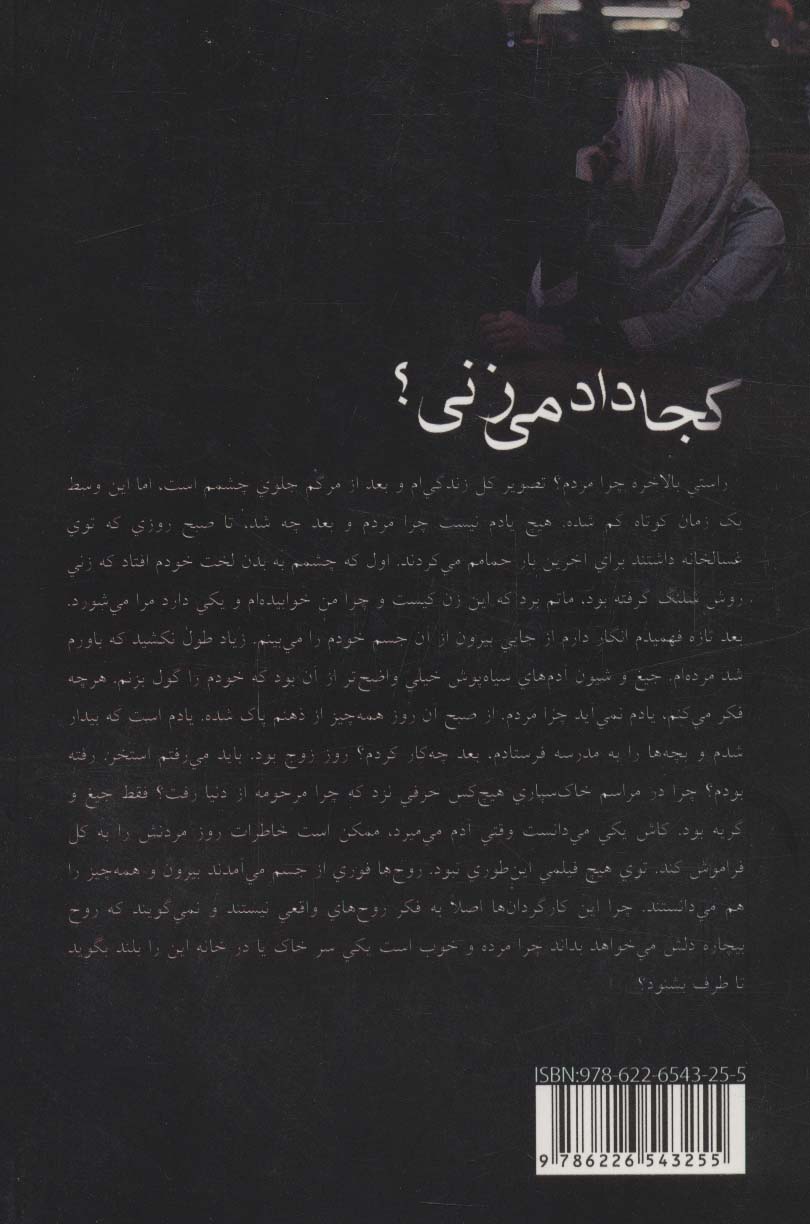 کجا داد می‌زنی؟
راستي بالاخره چرا مردم؟ تصوير کل زندگي‌ام و بعد از مرگم جلوي چشمم است، اما اين وسط
يک زمان کوتاه گم شده. هيچ يادم نيست چرا مردم و بعد چه شد، تا صبح روزي که توي
غسالخانه داشتند براي آخرين بار حمامم مي‌کردند. اول که چشمم به بدن لخت خودم افتاد که زني
رويش شلنگ گرفته بود، ماتم برد که اين زن کيست و چرا من خوابيده‌ام و يکي دارد مرا مي‌شورد.
بعد تازه فهميدم انگار دارم از جايي بيرون از آن جسم خودم را مي‌بينم. زياد طول نکشيد که باورم
شد مرده‌ام. جيغ و شيون آدم‌هاي سياه‌پوش خيلي واضح‌تر از آن بود که خودم را گول بزنم. هرچه
فکر مي‌کنم، يادم نمي‌آيد چرا مردم. از صبح آن روز همه‌چيز از ذهنم پاک شده. يادم است که بيدار
شدم و بچه‌ها را به مدرسه فرستادم. بعد چه‌کار کردم؟ روز زوج بود. بايد مي‌رفتم استخر. رفته
بودم؟ چرا در مراسم خاک‌سپاري هيچ‌کس حرفي نزد که چرا مرحومه از دنيا رفت؟ فقط جيغ و
گريه بود. کاش يکي مي‌دانست وقتي آدم مي‌ميرد، ممکن است خاطرات روز مردنش را به کل
فراموش کند. توي هيچ فيلمي اين‌طوري نبود. روح‌ها فوري از جسم مي‌آمدند بيرون و همه‌چيز را
هم مي‌دانستند. چرا اين کارگردان‌ها اصلاً به فکر روح‌هاي واقعي نيستند و نمي‌گويند که روح
بيچاره دلش مي‌خواهد بداند چرا مرده و خوب است يکي سر خاک يا در خانه اين را بلند بگويد
تا طرف بشنود؟
ISBN:978-622-6543-25-5
9 786226 543255